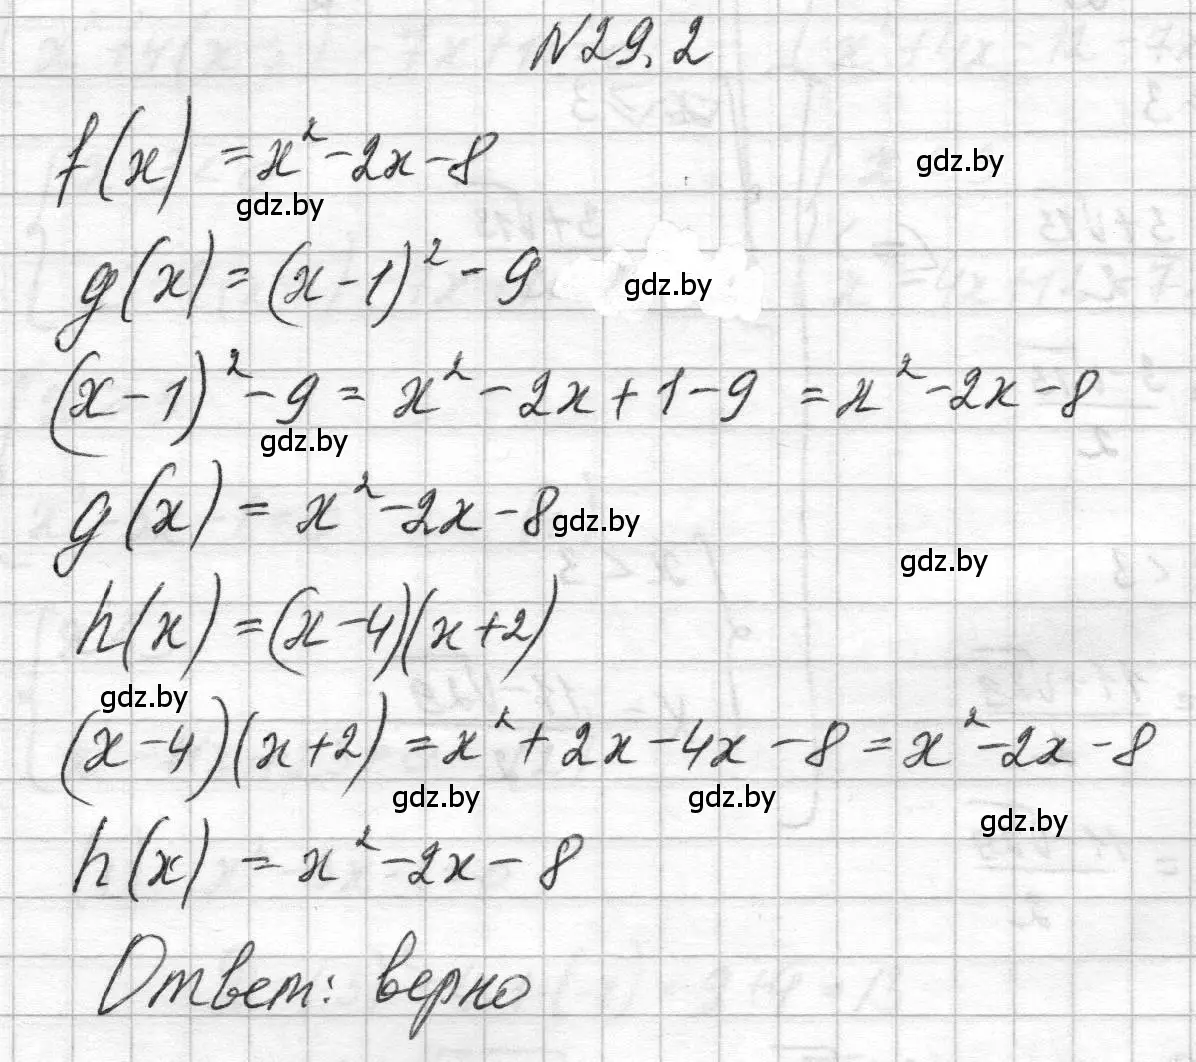 N29.2
f(x) = x² - 2x - 8
gdz.by
gdz.by
g(x) = (x-1)² - 9
gdz.by
(x-1)² - 9 = x² - 2x + 1 - 9 = x² - 2x - 8
gdz.by
g(x) = x² - 2x - 8
gdz.by
gdz.by
h(x) = (x-4)(x+2)
gdz.by
(x-4)(x+2) = x² + 2x - 4x - 8 = x² - 2x - 8
gdz.by gdz.by gdz.by
h(x) = x² - 2x - 8
Ответ: верно